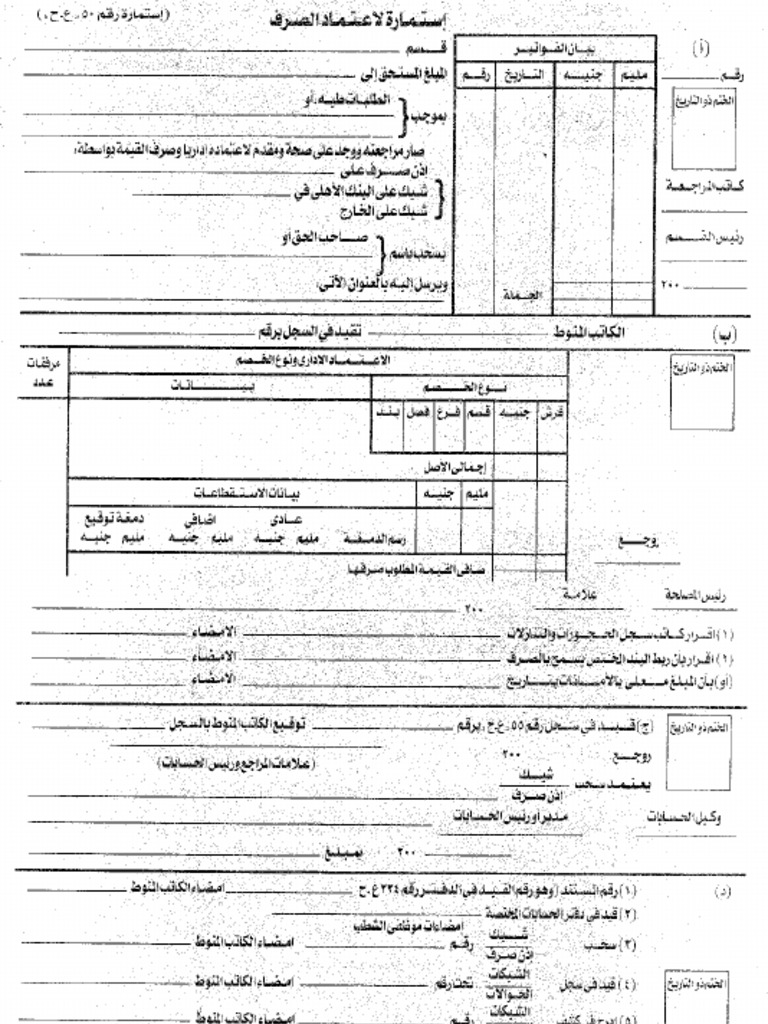 إستمارة لاعتماد الصرف
(إستمارة رقم ٥٠ ع.ح)
(أ)
رقم
الختم ذو التاريخ
كاتب المراجعة
رئيس القسم
٢٠٠
بيان الفواتير
مليم جنيه التاريخ رقم
الجملة
قسم
المبلغ المستحق إلى
بموجب
الطلبات طيه، أو
صار مراجعته ووجد على صحة ومقدم لاعتماده إداريا وصرف القيمة بواسطة:
إذن صرف على
شيك على البنك الأهلى في
شيك على الخارج
يسحب باسم
صاحب الحق أو
ويرسل إليه بالعنوان الآتى:
(ب) الكاتب المنوط تقيد في السجل برقم
الختم ذو التاريخ
الاعتماد الادارى ونوع الخصم
مرفقات عدد
نوع الخصم
بيانات
قرش جنيه قسم فرع فصل بند
إجمالى الاصل
مليم جنيه بيانات الاستقطاعات
رسم الدمغة
عادى اضافى دمغة توقيع
مليم جنيه مليم جنيه مليم جنيه
صافى القيمة المطلوب صرفها
روجع
رئيس المصلحة علامة ٢٠٠
(١) اقرار كاتب سجل الحجوزات والتنازلات الامضاء
(٢) اقرار بان ربط البند المختص يسمح بالصرف الامضاء
(او) بان المبلغ معلى بالأمانات بتاريخ الامضاء
(ج) قيد في سجل رقم ٥٥ ع.ح. برقم توقيع الكاتب المنوط بالسجل
الختم ذو التاريخ
روجع ٢٠٠
(علامات المراجع ورئيس الحسابات)
يعتمد سحب شيك
إذن صرف
وكيل الحسابات مدير او رئيس الحسابات
٢٠٠ بمبلغ
(د) (١) رقم المستند (وهو رقم القيد في الدفتر رقم ٢٢٤ ع.ح امضاء الكاتب المنوط
(٢) قيد في دفتر الحسابات المختصة
امضاءات موظفى الشطب
(٣) سحب شيك رقم امضاء الكاتب المنوط
إذن صرف
(٤) قيد في سجل الشيكات تحت رقم امضاء الكاتب المنوط
الحوالات
الختم ذو التاريخ
(٥) ادرج في كشف الشيكات رقم امضاء الكاتب المنوط